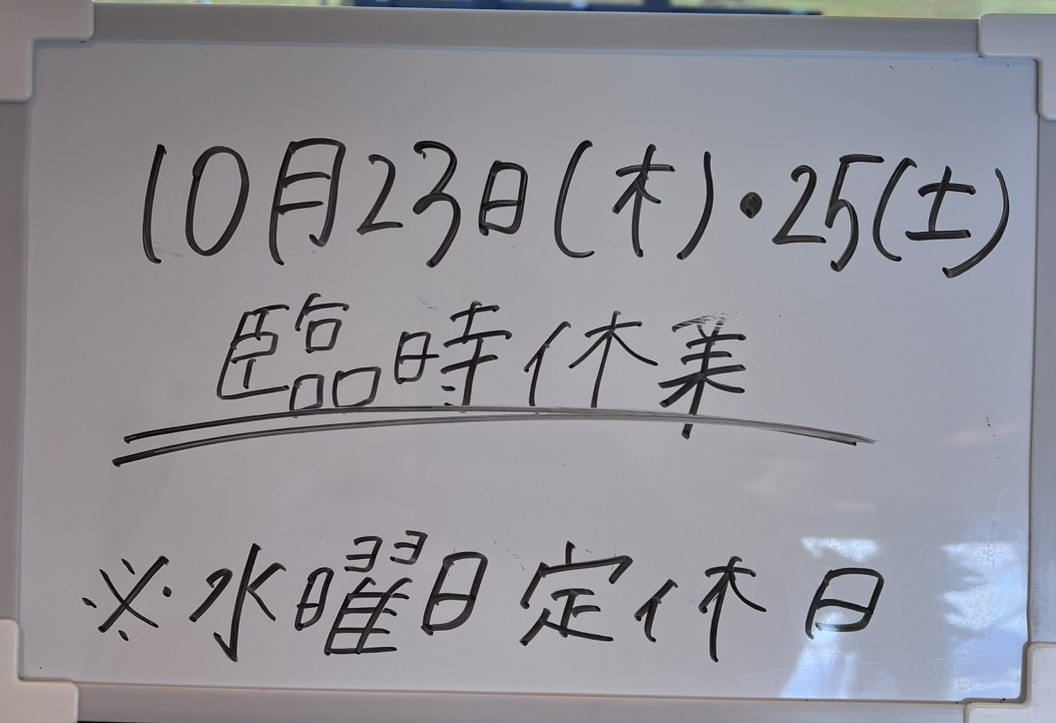 10月23日(木)・25(土)
臨時休業
※水曜日定休日